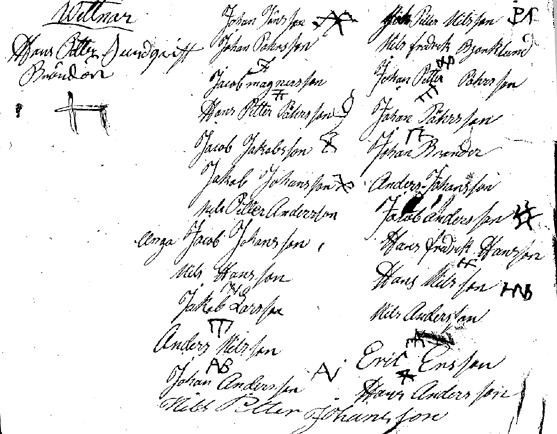 Wittmar
Hans Petter Sundqvist
Brändön
Johan Jönsson
Johan Pährsson
Jacob magnusson
Hans Petter Pährsson
Jacob Jakobsson
Jakob Johansson
Nils Petter Andersson
Jacob Johansson
Nils Hansson
Jakob Larsson
Anders Nilsson
AB
Johan Andersson AJ
Nils Petter Johansson
Petter Nilsson
Nils fredrik Bjorklund
Johan Petter Pährsson
Johan Pährsson
Johan Brander
Anders Johansson
Jacob andersson
Hans fredrik Hansson
Hans Nilsson
Nils Andersson
Eric Ersson
Hans Andersson